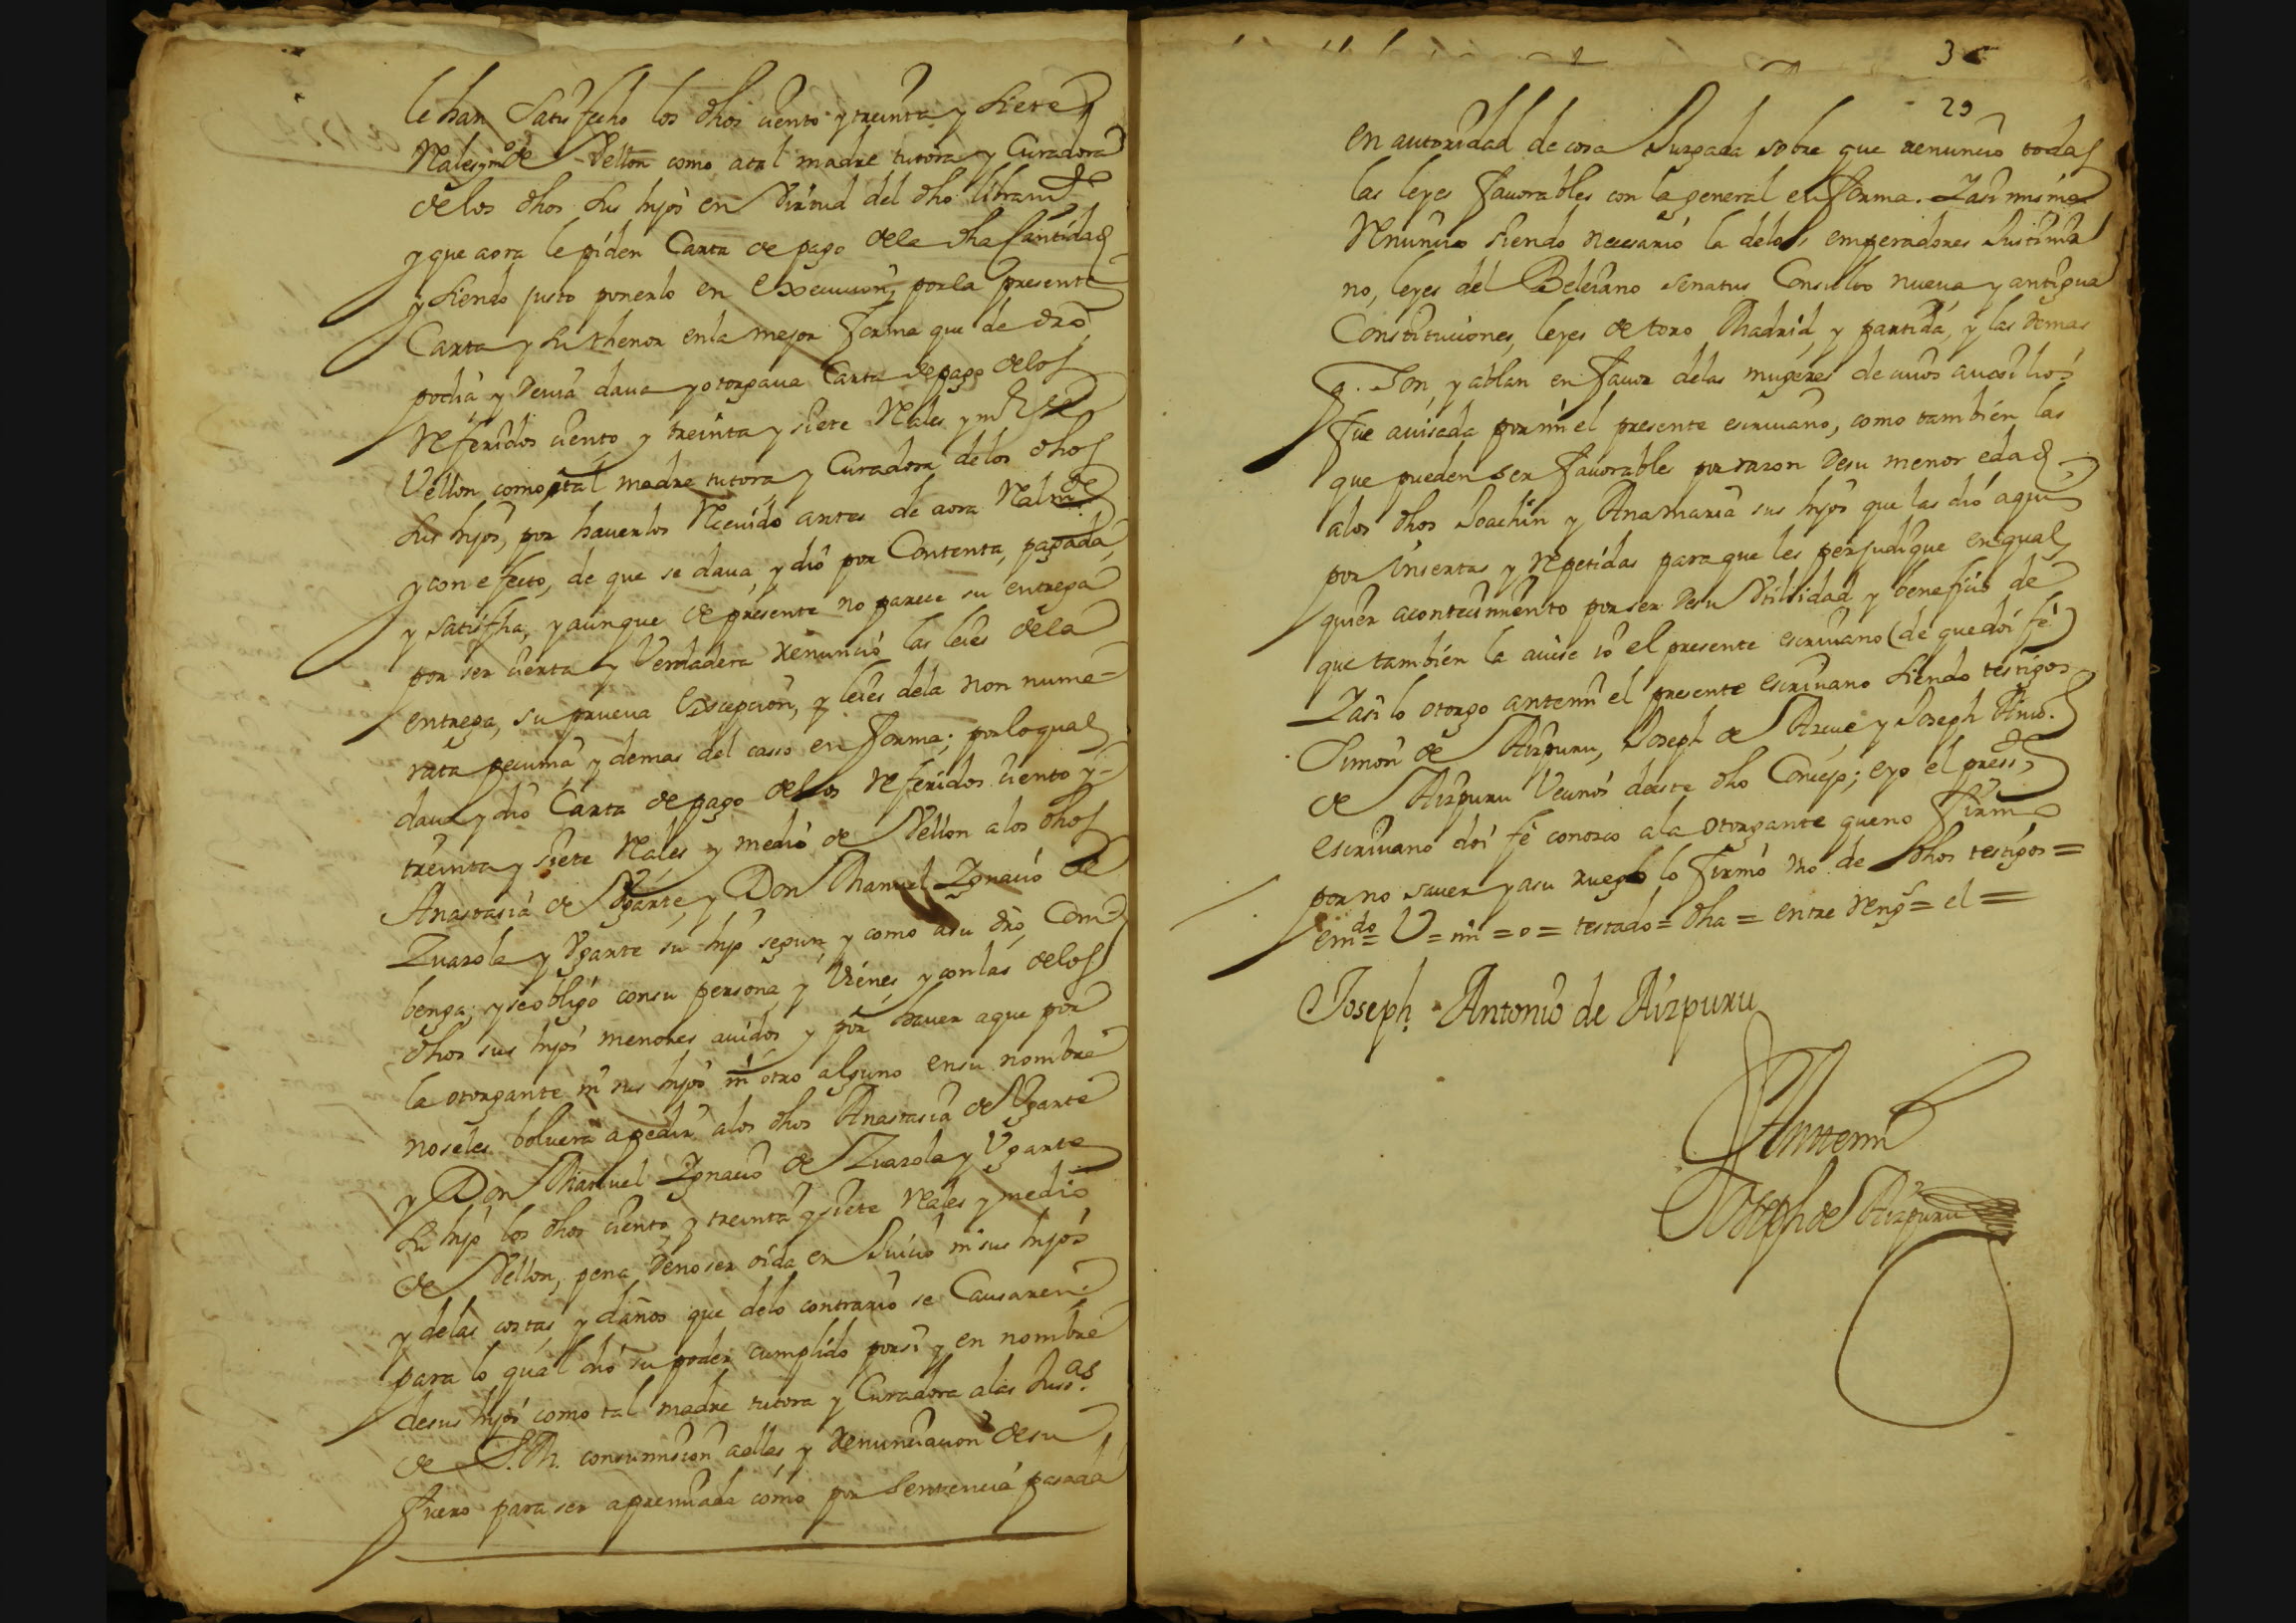 le han Satisfecho los dhos ciento y treinta y Siete
Reales y mº de Vellon como atal madre tutora y Curadora
de los dhos sus hijos en Virtud del dho libram.to
y que aora le piden Carta de pago dela dha Cantidad
y Siendo justo ponerlo en Execucion, por la presente
Carta y su thenor enla mejor forma que de dro
podia y devia dava y otorgava Carta de pago delos
Referidos ciento y treinta y siete Reales y mº de
Vellon como tal madre tutora y Curadora delos dhos
sus hijos, por haverlos Recivido antes de aora Realm.te
y con efecto, de que se dava, y dio por Contenta, pagada,
y satisfha, y aunque de presente no parece su entrega
por ser cierta y Verdadera renunció las leies dela
entrega, su prueva Excepcion, y leies dela non nume=
rata pecunia y demas del casso en forma; por lo qual
dava y dio Carta de pago delos Referidos ciento y=
treinta y siete Reales y medio de Vellon alos dhos
Anastasia de Vgarte y Don Manuel Ygnacio de
Zuazola y Vgarte su hijo segun, y como a su dro, Com=
benga; y se obligó con su persona y Vienes y con las delos
dhos sus hijos menores avidos y por haver a que por
la otorgante ni sus hijos ni otro alguno en su nombre
no seles bolverá a pedir alos dhos Anastasia de Vgarte
y Don Manuel Ygnacio de Zuazola y Vgarte
su hijo los dhos ciento y treinta y siete Reales y medio
de Vellon, pena de no ser oida en Juicio ni sus hijos
y delas costas y daños que delo contrario se Causaren;
para lo qual dió su poder cumplido por si y en nombre
de sus hijos como tal madre tutora y Curadora alas Juss.as
de S. M. con sumision aellas, y Renunciacion de su
fuero para ser apremiada como por Sentencia pasada
3
29
en autoridad de cosa Juzgada sobre que renuncio todas
las leyes favorables con la general en forma. Y asi mismo
Renuncio siendo necesario la delos emperadores Justinia
no, leyes del Beleiano senatus Consulto nueva y antigua
Constituciones, leyes de toro Madrid, y partida, y las demas
q. son, y ablan en favor delas mugeres de cuios auxilios
fue avisada por mi el presente escrivano, como tambien las
que pueden ser favorables por razon de su menor edad
alos dhos Joachin y Ana maria sus hijos que las dió aqui
por insertas y repetidas para que les perjudique en qual
quier acontecimiento por ser de su Vtilidad y beneficio de
que tambien la avise io el presente escrivano (de que doi fe)
Y asi lo otorgo antemi el presente escrivano siendo testigos
Simon de Aizpuru, Joseph de Azcue y Joseph Antt.o
de Aizpuru Vecinos deeste dho Concejo; e yo el press.te
escrivano doi fe conozco ala otorgante que no firmo
por no saver y a su ruego lo firmó vno de dhos testigos=
em.do= V = mi = o = testado = dha = entre Reng.s = el =
Joseph Antonio de Aizpuru
Antemi
Joseph de Aizpuru